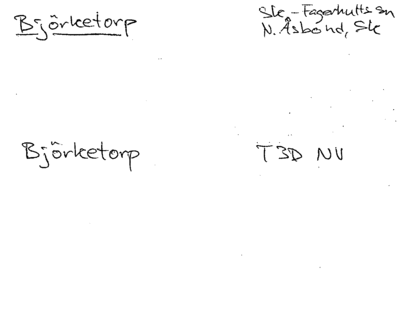 Björketorp
Sk.-Fagerhults sn
N. Åsbond, Sk
Björketorp
T3D NV